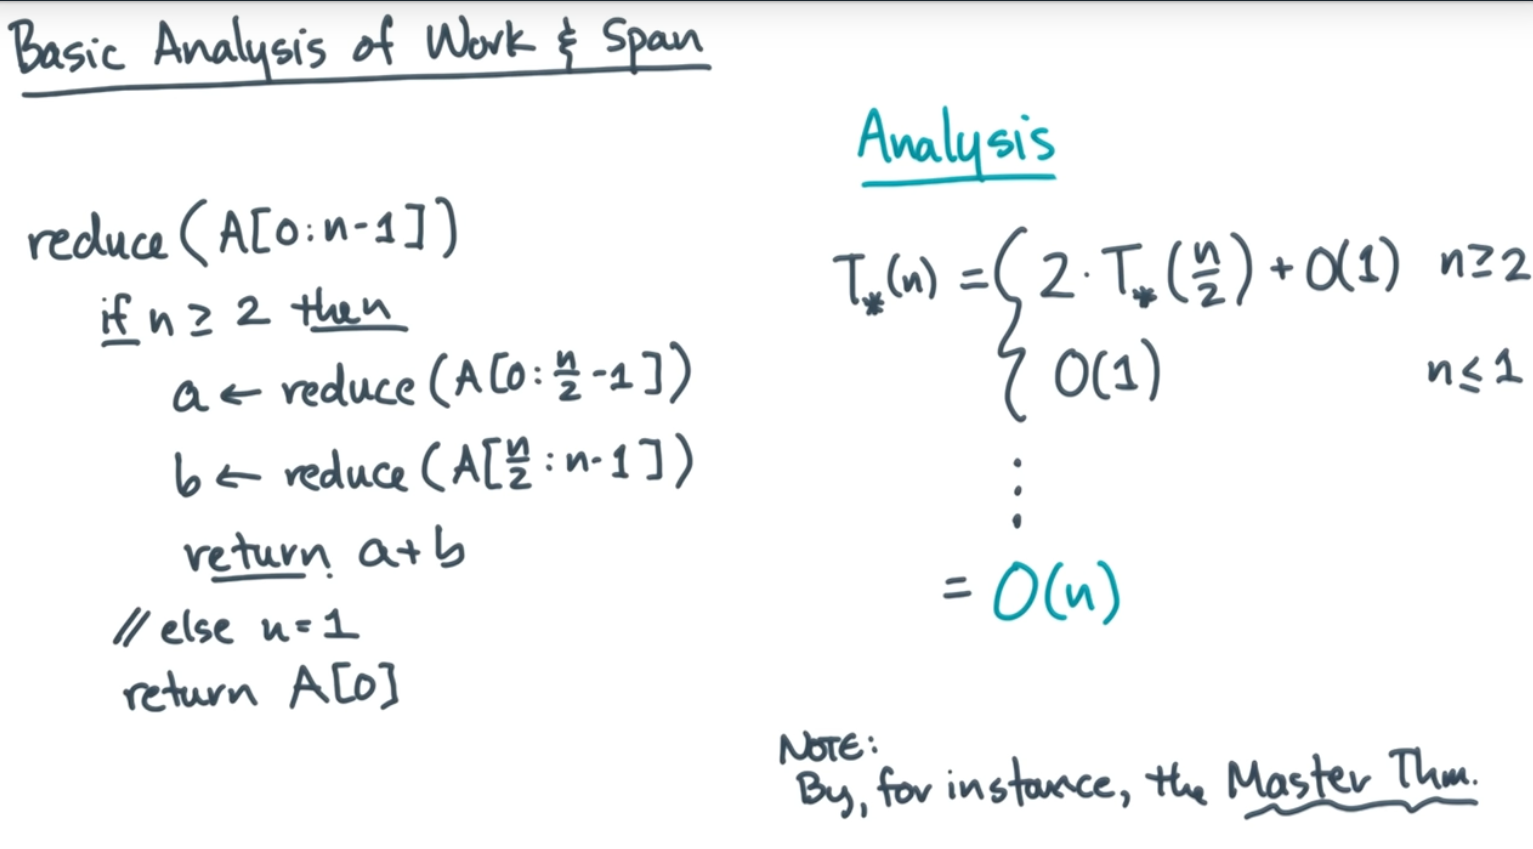 Basic Analysis of Work & Span
reduce(A[0:n-1])
if n ≥ 2 then
a ← reduce(A[0:n/2-1])
b ← reduce(A[n/2:n-1])
return a+b
// else n=1
return A[0]
Analysis
T*(n) = { 2·T*(n/2) + O(1) n≥2
O(1) n≤1
⋮
= O(n)
NOTE:
By, for instance, the Master Thm.